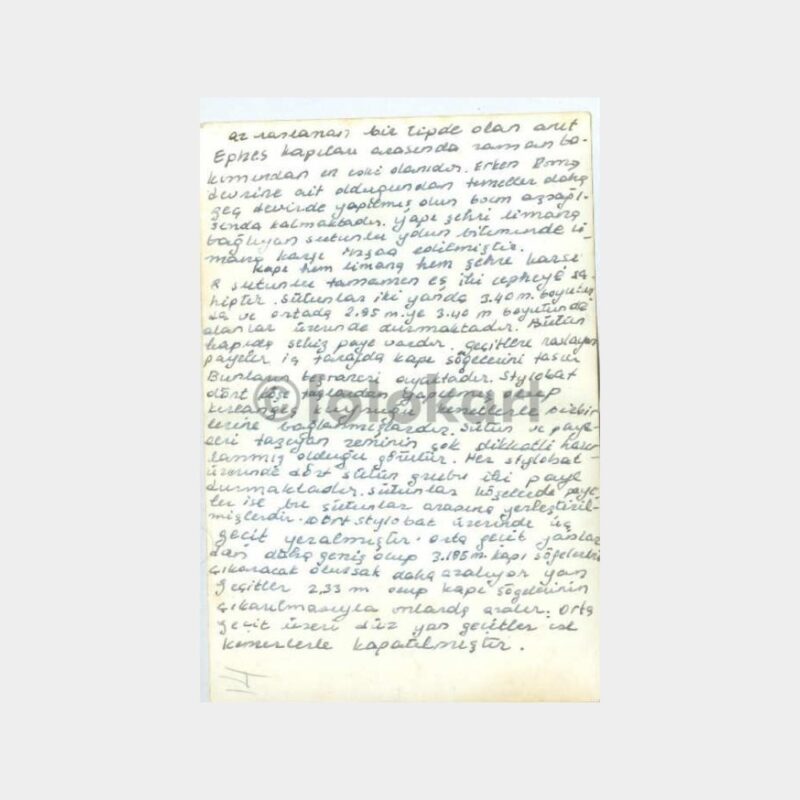 az raslanan bir tipde olan anıt
Ephes kapıları arasında zaman ba-
kımından en eski olanıdır. Erken Roma
devrine ait olduğundan temeller daha
geç devirde yapılmış olan aşağı-
sında kalmaktadır. Yapı şehri limana
bağlıyan sütunlu yolun bitiminde li-
mana karşı inşaa edilmiştir.
Kapı hem limana hem şehre karşı
8 sütunlu tamamen eş iki cepheye sa-
hiptir. Sütunlar iki yanda 3.40 m. boyutun
da ve ortada 2.95 m. ye 3.40 m boyutunda
alanlar üzerinde durmaktadır. Bütün
kapıda sekiz paye vardır. geçitlere raslayan
payeler iç tarafda kapı söğelerini taşır
Bunların ayaktadır. Stylobat
dört köşe taşlardan yapılmış olup
kırlangıç kuyruğu kenetlerle birbir
lerine bağlanmışlardır. Sütun ve paye-
leri taşıyan zeminin çok dikkatli hazır
lanmış olduğu görülür. Her stylobat
üzerinde dört sütun grubu iki paye
durmaktadır. sütunlar köşelerde paye
ler ise bu sütunlar arasına yerleştiril-
mişlerdir. Dört stylobat üzerinde üç
geçit yeralmıştır. Orta geçit yanlar
dan daha geniş olup 3.185 m. kapı söğelerini
çıkaracak olursak daha azalıyor yan
geçitler 2,33 m olup kapı söğelerinin
çıkarılmasıyla onlarda azalır. Orta
geçit üzeri düz yan geçitler ise
kemerlerle kapatılmıştır.
14
©fotokart